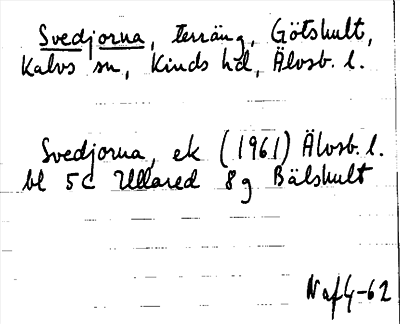 Svedjorna, terräng, Götshult,
Kalvs sn, Kinds hd, Älvsb. l.
Svedjorna, ek (1961) Älvsb. l.
bl 5c Ullared 8g Bälshult